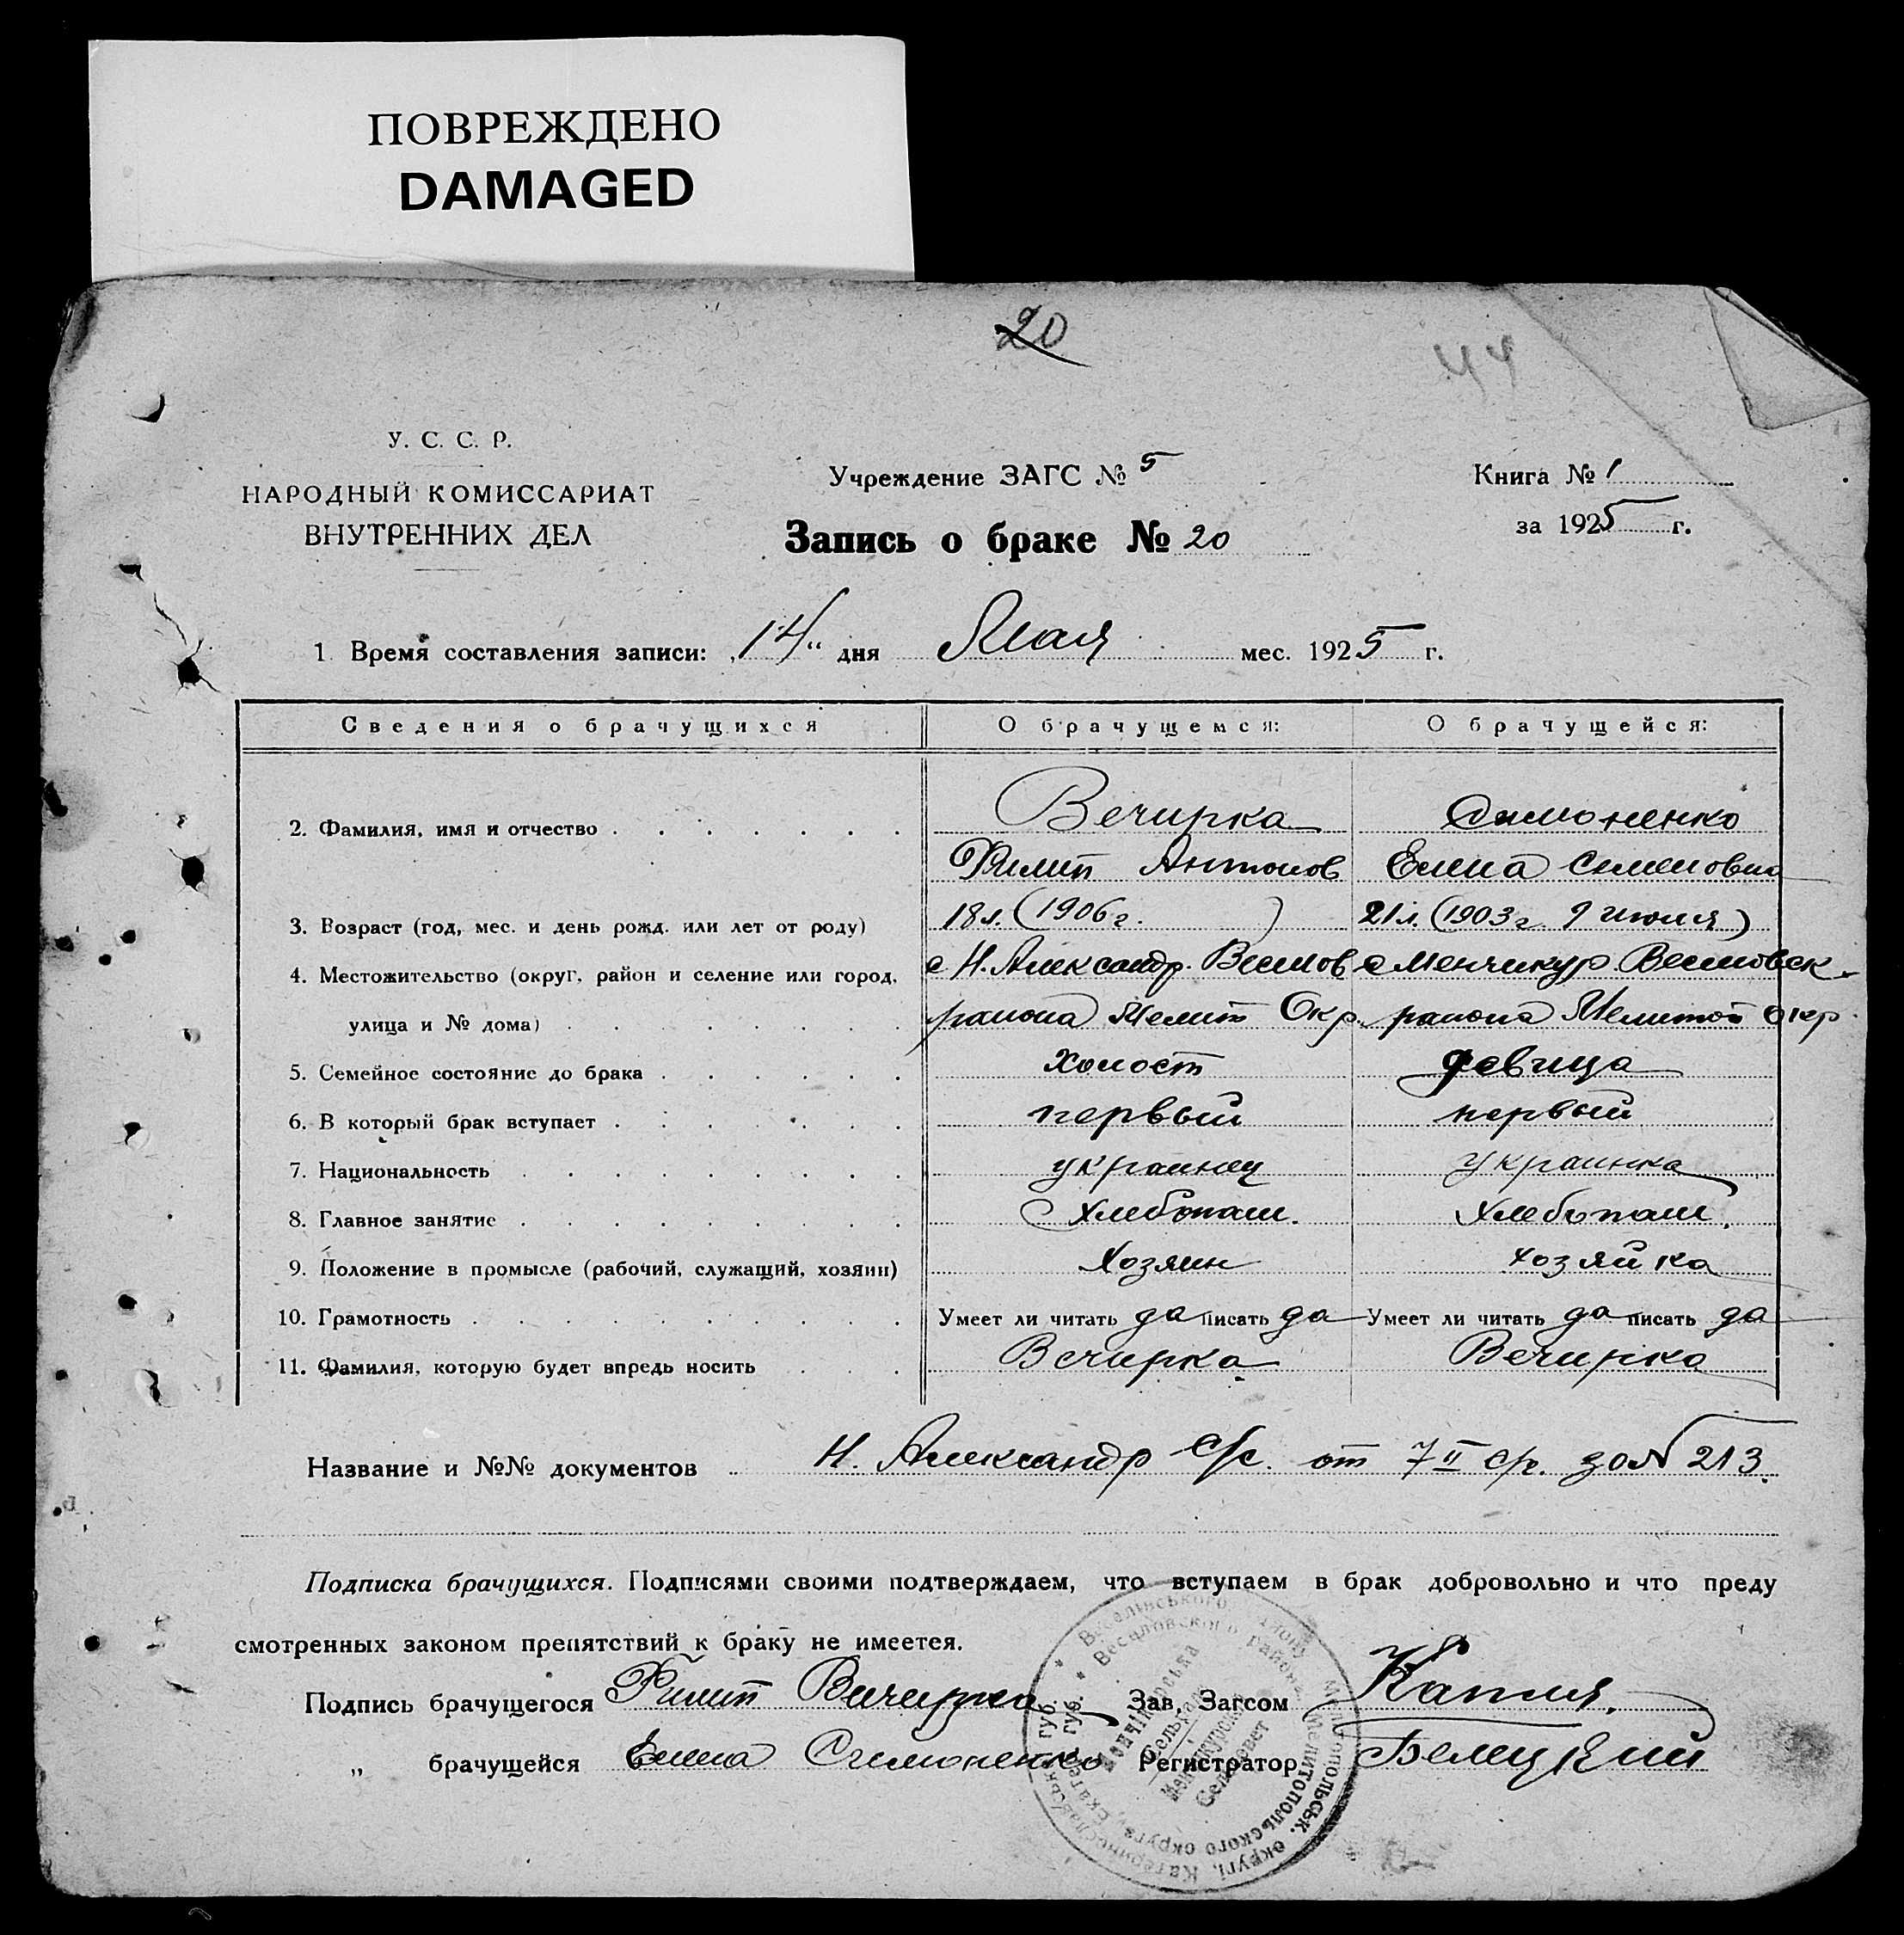 ПОВРЕЖДЕНО
DAMAGED
20
44
У. С. С. Р.
НАРОДНЫЙ КОМИССАРИАТ
ВНУТРЕННИХ ДЕЛ
Учреждение ЗАГС № 5
Запись о браке № 20
Книга № 1
за 1925 г.
1. Время составления записи: „14“ дня Мая мес. 1925 г.
Сведения о брачущихся О брачущемся: О брачущейся:
2. Фамилия, имя и отчество Вечирка Симоненко
Филип Антонов Елена Семеновна
3. Возраст (год, мес. и день рожд. или лет от роду) 18 л. (1906 г. ) 21 л. (1903 г. 9 июля)
4. Местожительство (округ, район и селение или город, с Н. Александр. Веселов с Менчикур Веселовск
улица и № дома) района Мелит Окр. района Мелитоп Окр.
5. Семейное состояние до брака холост девица
6. В который брак вступает первый первый
7. Национальность украинец украинка
8. Главное занятие Хлебопаш. Хлебопаш.
9. Положение в промысле (рабочий, служащий, хозяин) Хозяин хозяйка
10. Грамотность Умеет ли читать да писать да Умеет ли читать да писать да
11. Фамилия, которую будет впредь носить Вечирка Вечирка
Название и №№ документов Н. Александр с/с. от 7 II с/г. за № 213.
Подписка брачущихся. Подписями своими подтверждаем, что вступаем в брак добровольно и что преду
смотренных законом препятствий к браку не имеется.
Подпись брачущегося Филип Вичирка Зав. Загсом Капля.
„ брачущейся Елена Симоненко Регистратор Белецкий
Веселовского района Мелитопольского округа, Екатер. губ.
Сельсовет